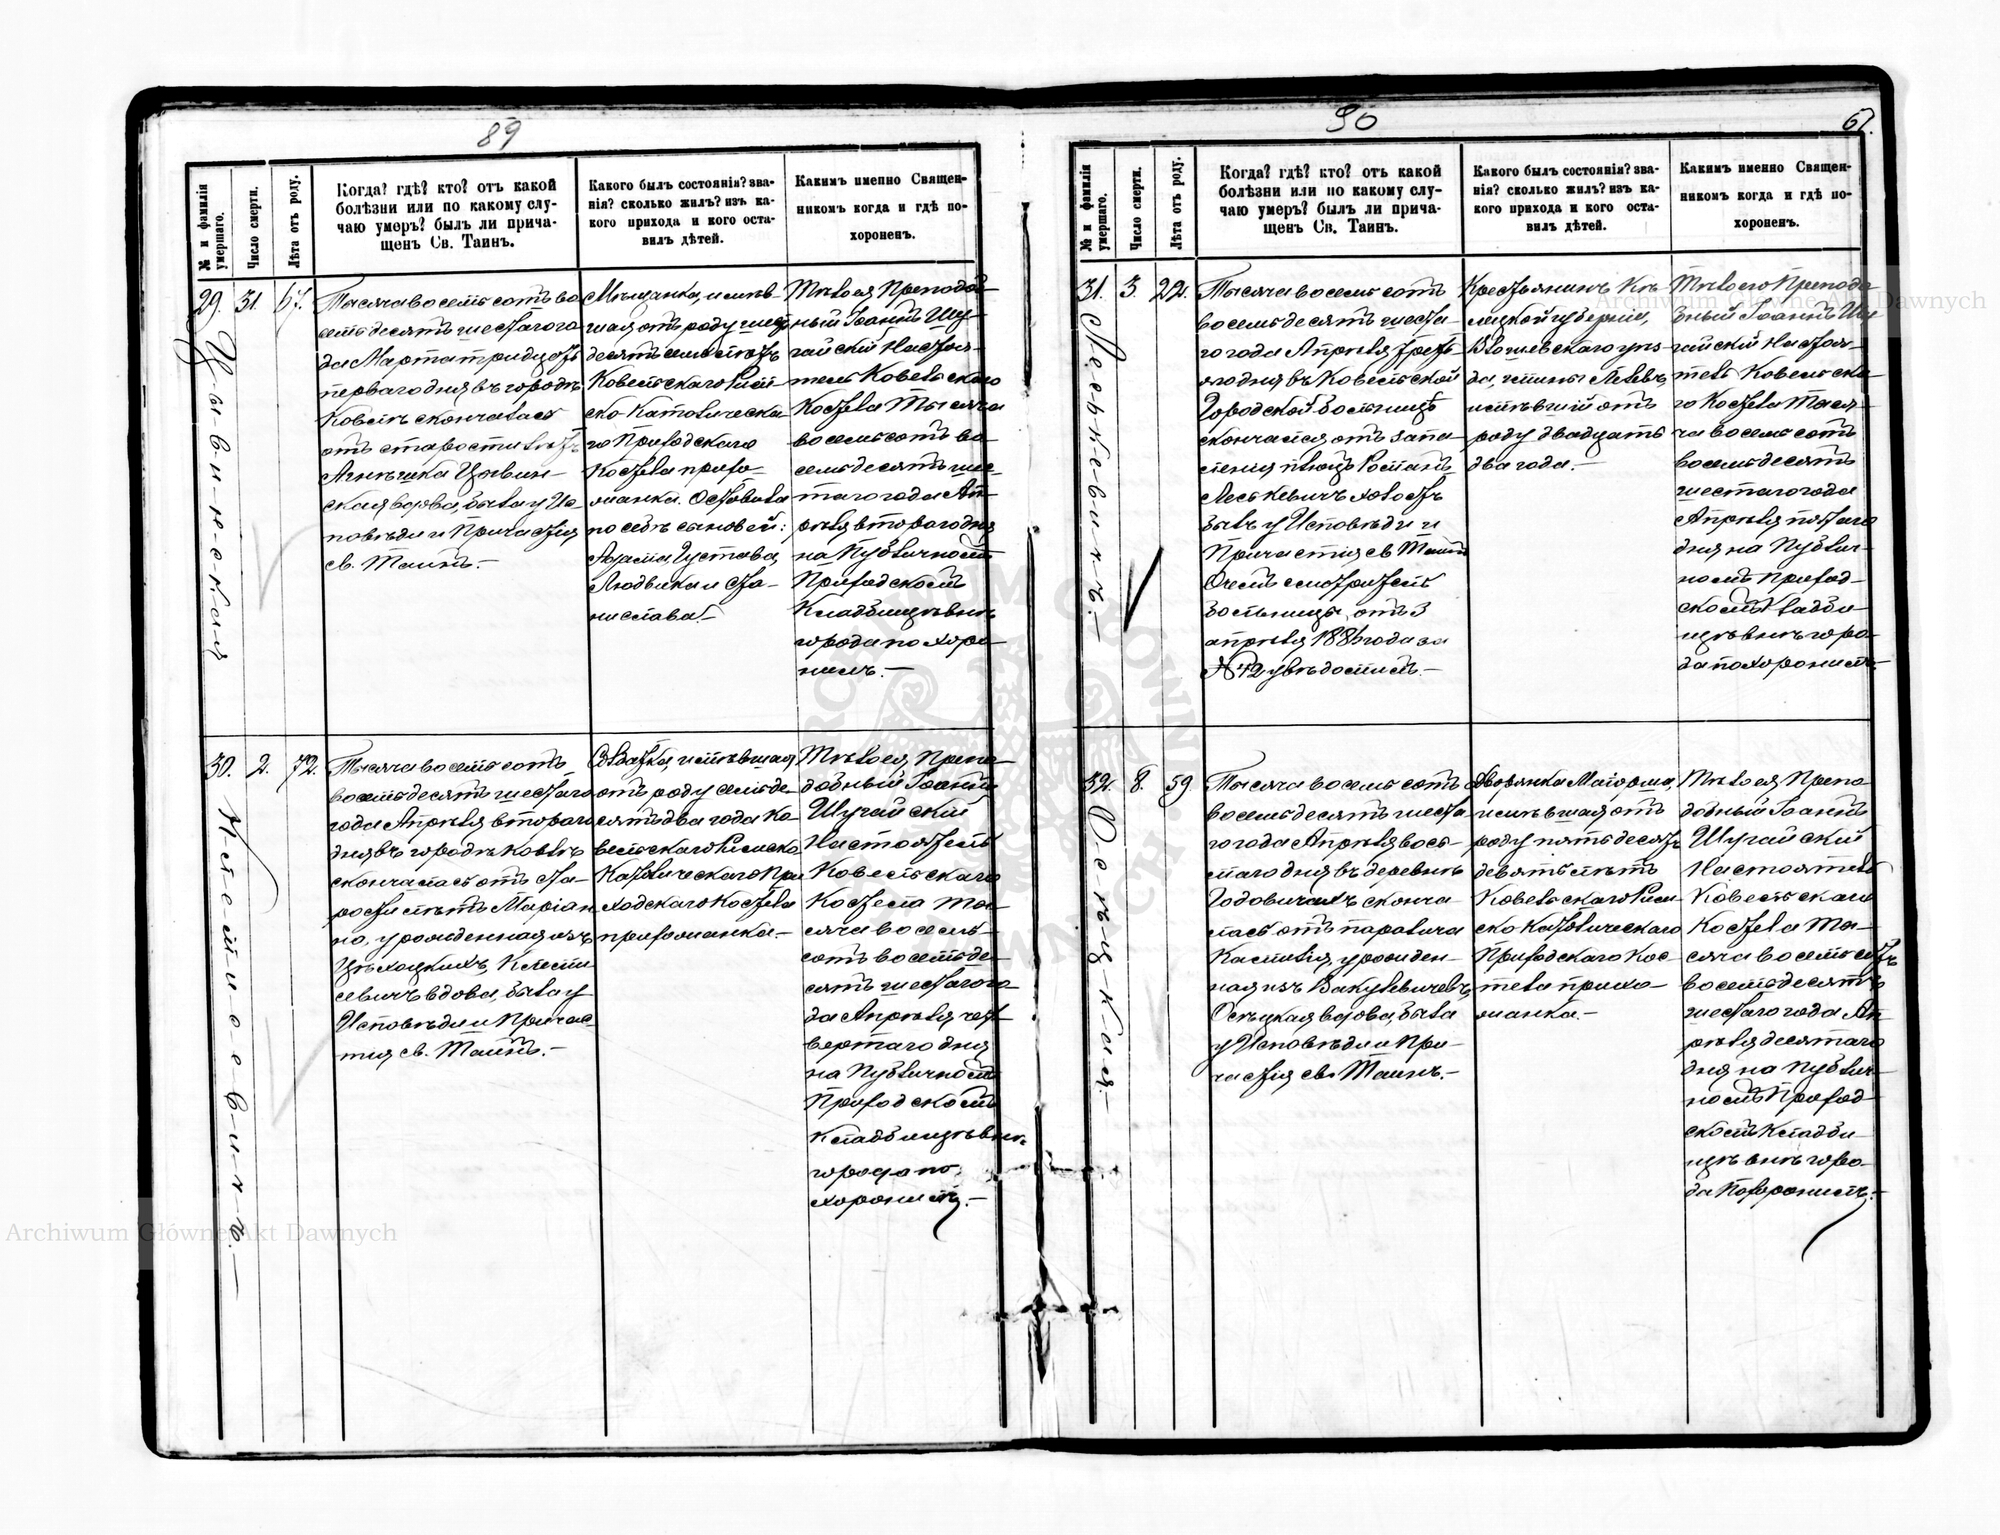 89
№ и фамилія умершаго.
Число смерти.
Лѣта отъ роду.
Когда? гдѣ? кто? отъ какой
болѣзни или по какому слу-
чаю умеръ? былъ ли прича-
щенъ Св. Таинъ.
Какого былъ состоянія? зва-
нія? сколько жилъ? изъ ка-
кого прихода и кого оста-
вилъ дѣтей.
Какимъ именно Священ-
никомъ когда и гдѣ по-
хороненъ.
29.
Цывинская
31.
67.
Тысяча восемь сотъ во
семьдесятъ шестаго го
да Марта тридцать
перваго дня въ городѣ
Ковелѣ скончалась
отъ старости лѣтъ
Агнѣшка Цывин-
ская вдова, была у Ис-
повѣди и Причастія
св. Таинъ.-
Мѣщанка, имѣв-
шая отъ роду шест
десятъ семь лѣтъ
Ковельскаго Рим-
ско-Католическа-
го Приходскаго
Костела прихо-
жанка. Оставила
по себѣ сыновей:
Адама, Густава,
Людвика и Ста-
нислава.-
Тѣло ея Преподоб-
ный Іоаннъ Шу-
гайскій Настоя-
тель Ковельскаго
Костела Тысяча
восемь сотъ во-
семьдесятъ шес-
таго года Ап-
рѣля втораго дня
на Публичномъ
Приходскомъ
Кладбищѣ внѣ
города похоро-
нилъ.-
30.
Клемпсевичъ.-
2.
72.
Тысяча восемь сотъ
восемьдесятъ шестаго
года Апрѣля втораго
дня въ городѣ Ковлѣ
скончалась отъ ста-
рости лѣтъ Маріан
на, урожденная изъ
вдова, была у
Исповѣди и Причас-
тія св. Таинъ.-
имѣвшая
отъ роду семьде-
сятъ два года Ко-
вельскаго Римско
Католическаго При
ходскаго Костела
прихожанка.-
Тѣло ея Препо-
добный Іоаннъ
Шугайскій
Настоятель
Ковельскаго
Костела Ты-
сяча восемь-
сотъ восемьде-
сятъ шестаго го-
да Апрѣля чет-
вертаго дня
на Публичномъ
Приходскомъ
Кладбищѣ внѣ
города по-
хоронилъ.-
90
61.
№ и фамилія умершаго.
Число смерти.
Лѣта отъ роду.
Когда? гдѣ? кто? отъ какой
болѣзни или по какому слу-
чаю умеръ? былъ ли прича-
щенъ Св. Таинъ.
Какого былъ состоянія? зва-
нія? сколько жилъ? изъ ка-
кого прихода и кого оста-
вилъ дѣтей.
Какимъ именно Священ-
никомъ когда и гдѣ по-
хороненъ.
31.
Леськевичъ.-
3.
22.
Тысяча восемь сотъ
восемьдесятъ шеста-
го года Апрѣля треть-
яго дня въ Ковельской
Городской Больницѣ
скончался отъ запа-
ленія лёгкихъ Романъ
Леськевичъ холостъ
былъ у Исповѣди и
Причастія св. Таинъ
О чемъ смотритель
больницы отъ 3
апрѣля 1886 года за
№ 42 увѣдомилъ.-
Крестьянинъ Кѣ-
лецкой губерніи,
Влощевскаго уѣз-
да, гмины
имѣвшій отъ
роду двадцать
два года.-
Тѣло его Преподо
бный Іоаннъ Шу
гайскій Настоя-
тель Ковельска-
го Костела Тыся-
ча восемь сотъ
восемьдесятъ
шестаго года
Апрѣля пятаго
дня на Публич-
номъ Приход-
скомъ Кладби-
щѣ внѣ горо-
да похоронилъ.-
32.
Осецкая.-
8.
59
Тысяча восемь сотъ
восемьдесятъ шеста
го года Апрѣля вось-
маго дня въ деревнѣ
Годовичахъ сконча
лась отъ паралича
Камилія, урожден-
ная изъ
Осѣцкая вдова, была
у Исповѣди и При-
частія св. Таинъ.-
Дворянка Маіорша,
имѣвшая отъ
роду пятьдесятъ
девять лѣтъ
Ковельскаго Рим
ско-Католическаго
Приходскаго Кос-
тела прихо-
жанка.-
Тѣло ея Препо-
добный Іоаннъ
Шугайскій
Настоятель
Ковельскаго
Костела Ты-
сяча восемь сотъ
восемьдесятъ
шестаго года Ап
рѣля десятаго
дня на Публич-
номъ Приход-
скомъ Кладби-
щѣ внѣ горо-
да похоронилъ.-
Archiwum Główne Akt Dawnych
Archiwum Główne Akt Dawnych